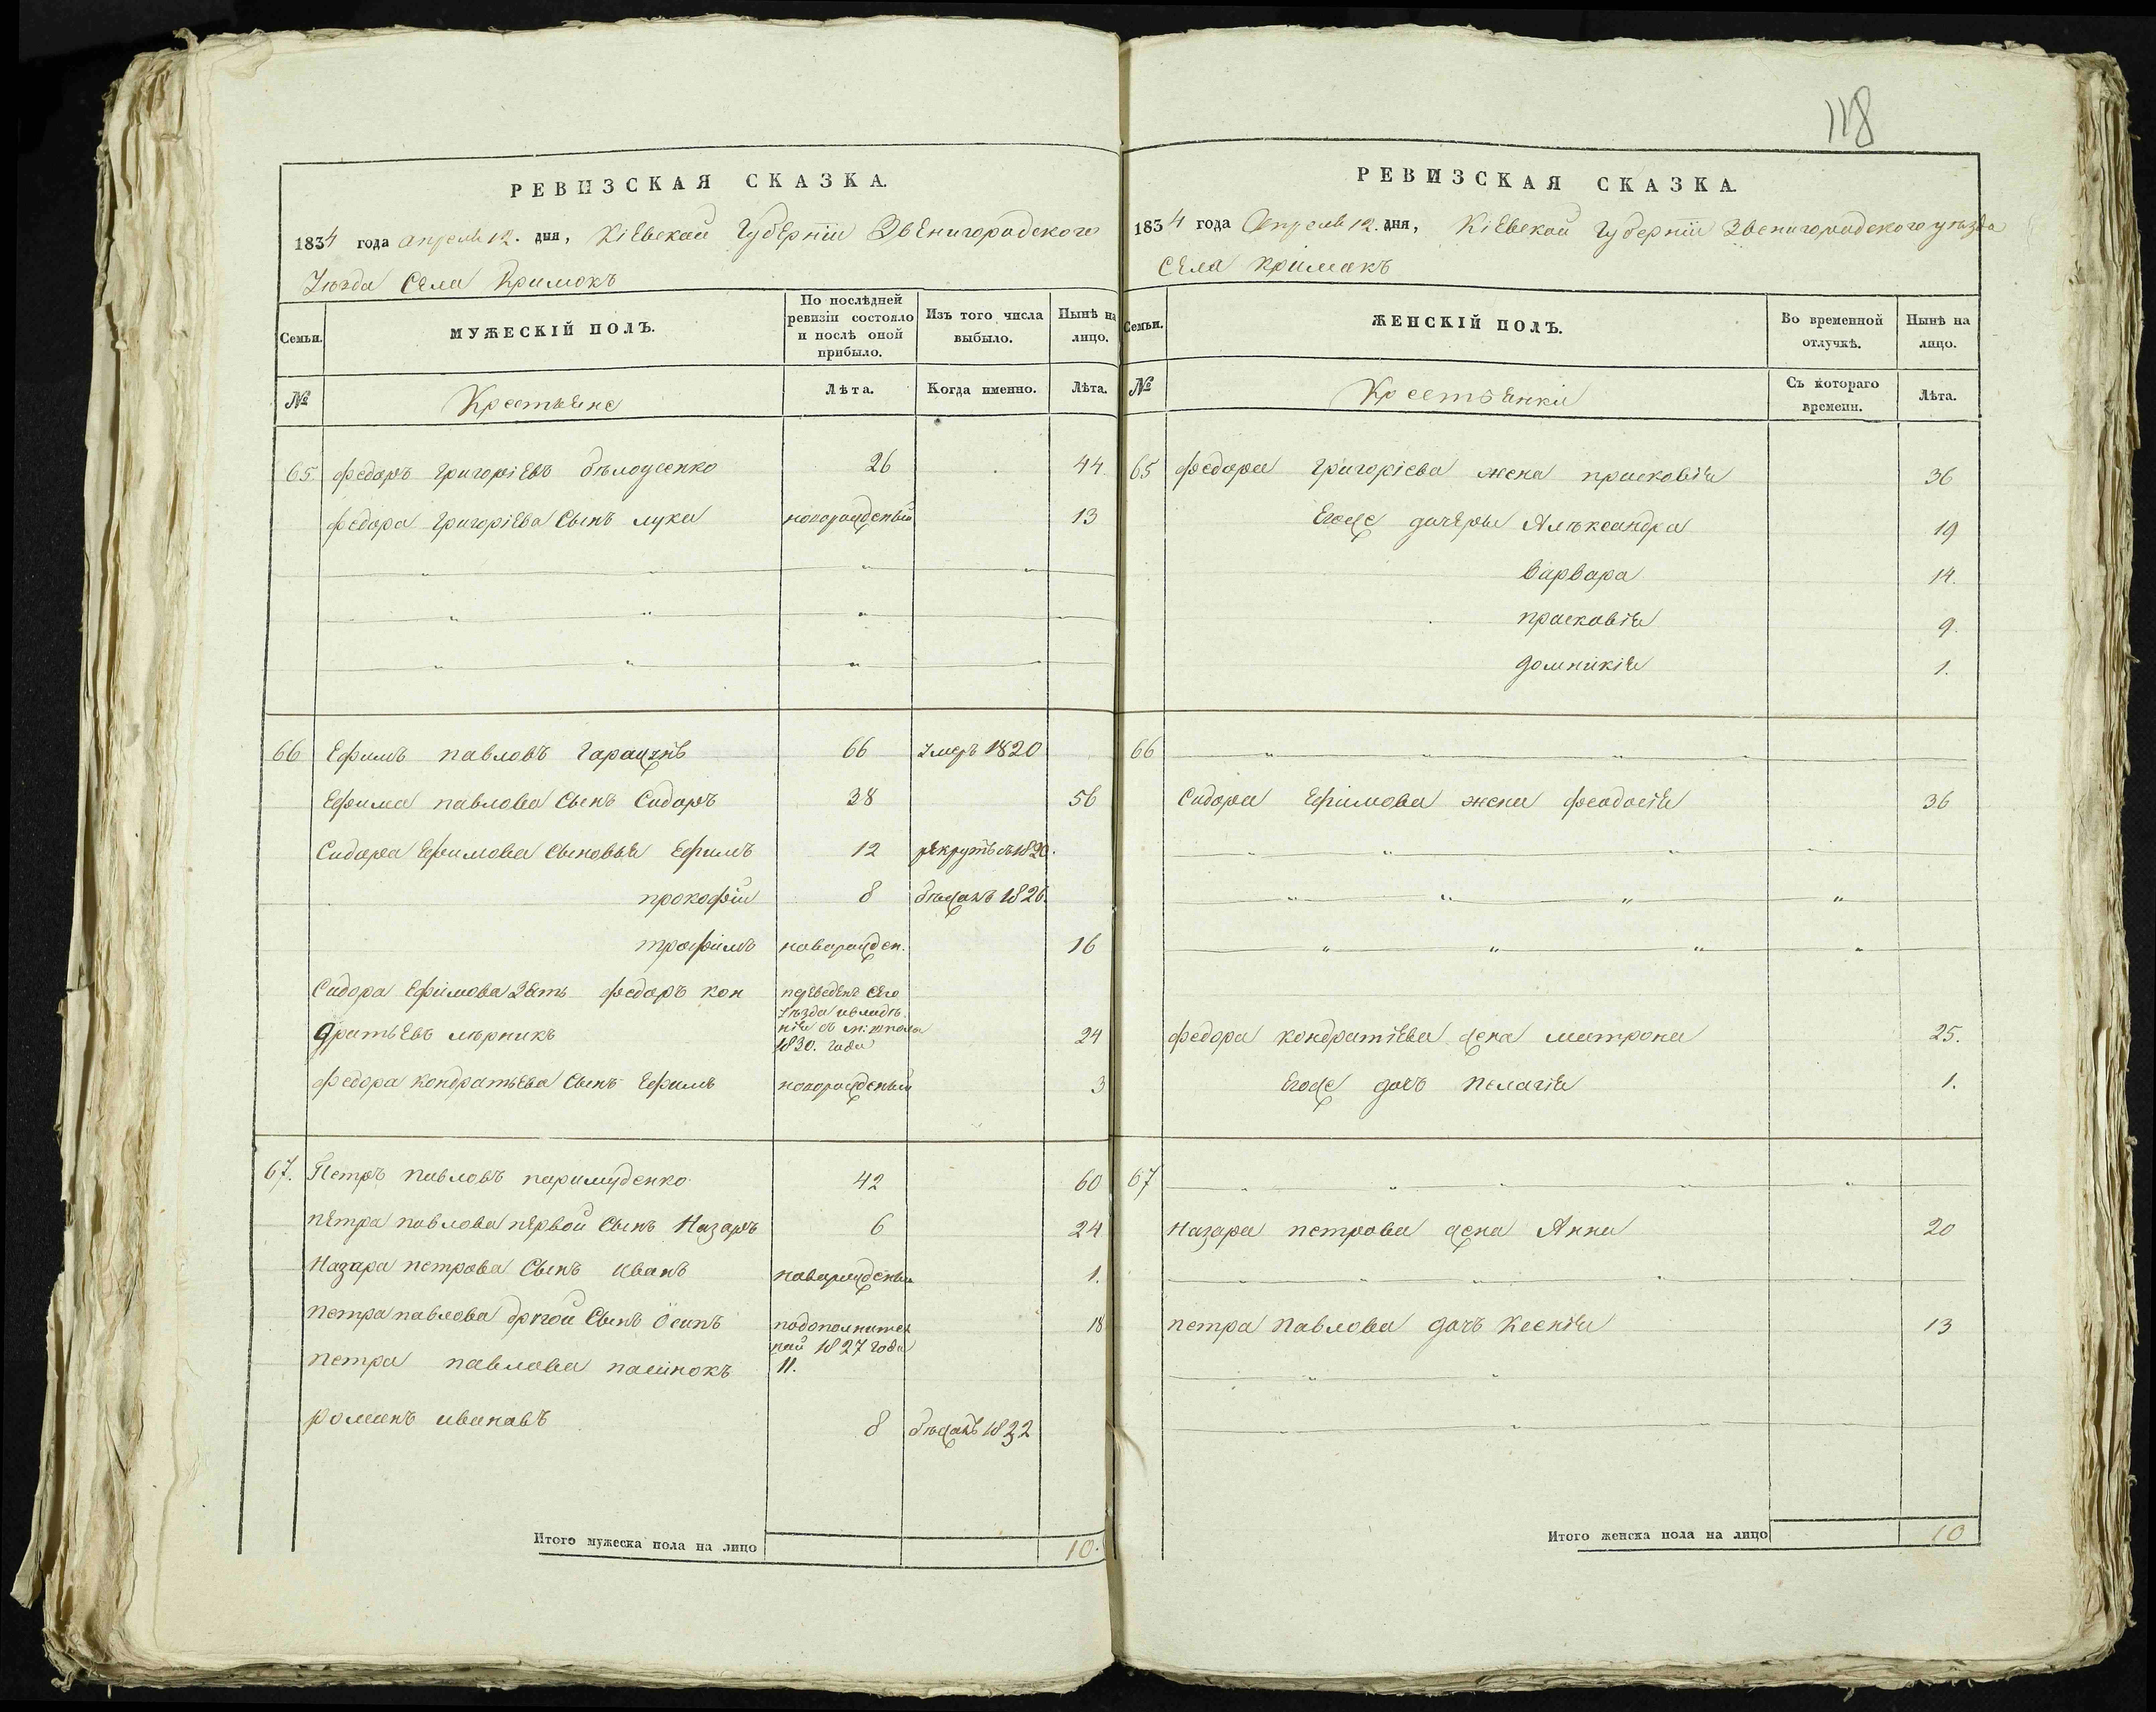 118
РЕВИЗСКАЯ СКАЗКА.
1834 года апреля 12. дня, Кіевской Губерніи Звенигородского
Уѣзда Села Кримокъ
Семьи.
МУЖЕСКІЙ ПОЛЪ.
По послѣдней ревизіи состояло и послѣ оной прибыло.
Изъ того числа выбыло.
Нынѣ на лицо.
№
Крестьяне
Лѣта.
Когда именно.
Лѣта.
65. федоръ григоріевъ 26 44
федора григоріева Сынъ лука новорожденый 13
66 Ефимъ павловъ 66 Умеръ 1820
Ефима павлова Сынъ Сидоръ 38 56
Сидора Ефимова Сыновья Ефимъ 12 рекрутъ съ 1820.
прокофій 8 бѣжалъ 1826.
трофимъ новорожден. 16
Сидора Ефимова Зять федоръ кон
дратьевъ мѣрникъ
переведенъ Сего
Уѣзда
1830. года
24
федора кондратьева Сынъ Ефимъ новорожденый 3
67. Петръ павловъ паримуденко 42 60
петра павлова первой Сынъ Назаръ 6 24
Назара петрова Сынъ иванъ новорожденый 1.
петра павлова другой Сынъ Осипъ
подополнител
ной 1827 года
11.
18
петра павлова пасинокъ
романъ ивановъ 8 бѣжалъ 1832
Итого мужеска пола на лицо 10.
РЕВИЗСКАЯ СКАЗКА.
1834 года Апреля 12. дня, Кіевской Губерніи Звенигородского уѣзда
Села кримокъ
Семьи.
ЖЕНСКІЙ ПОЛЪ.
Во временной отлучкѣ.
Нынѣ на лицо.
№
Крестьянки
Съ котораго времени.
Лѣта.
65 федора григоріева жена прасковія 36
Егоже дочеры Алѣксандра 19
варвара 14.
прасковія 9.
домникія 1.
66
Сидора Ефимова жена феодосія 36
федора кондратіева жена матрона 25.
Егоже дочь пелагія 1.
67
Назара петрова жена Анна 20
петра павлова дочь ксенія 13
Итого женска пола на лицо 10